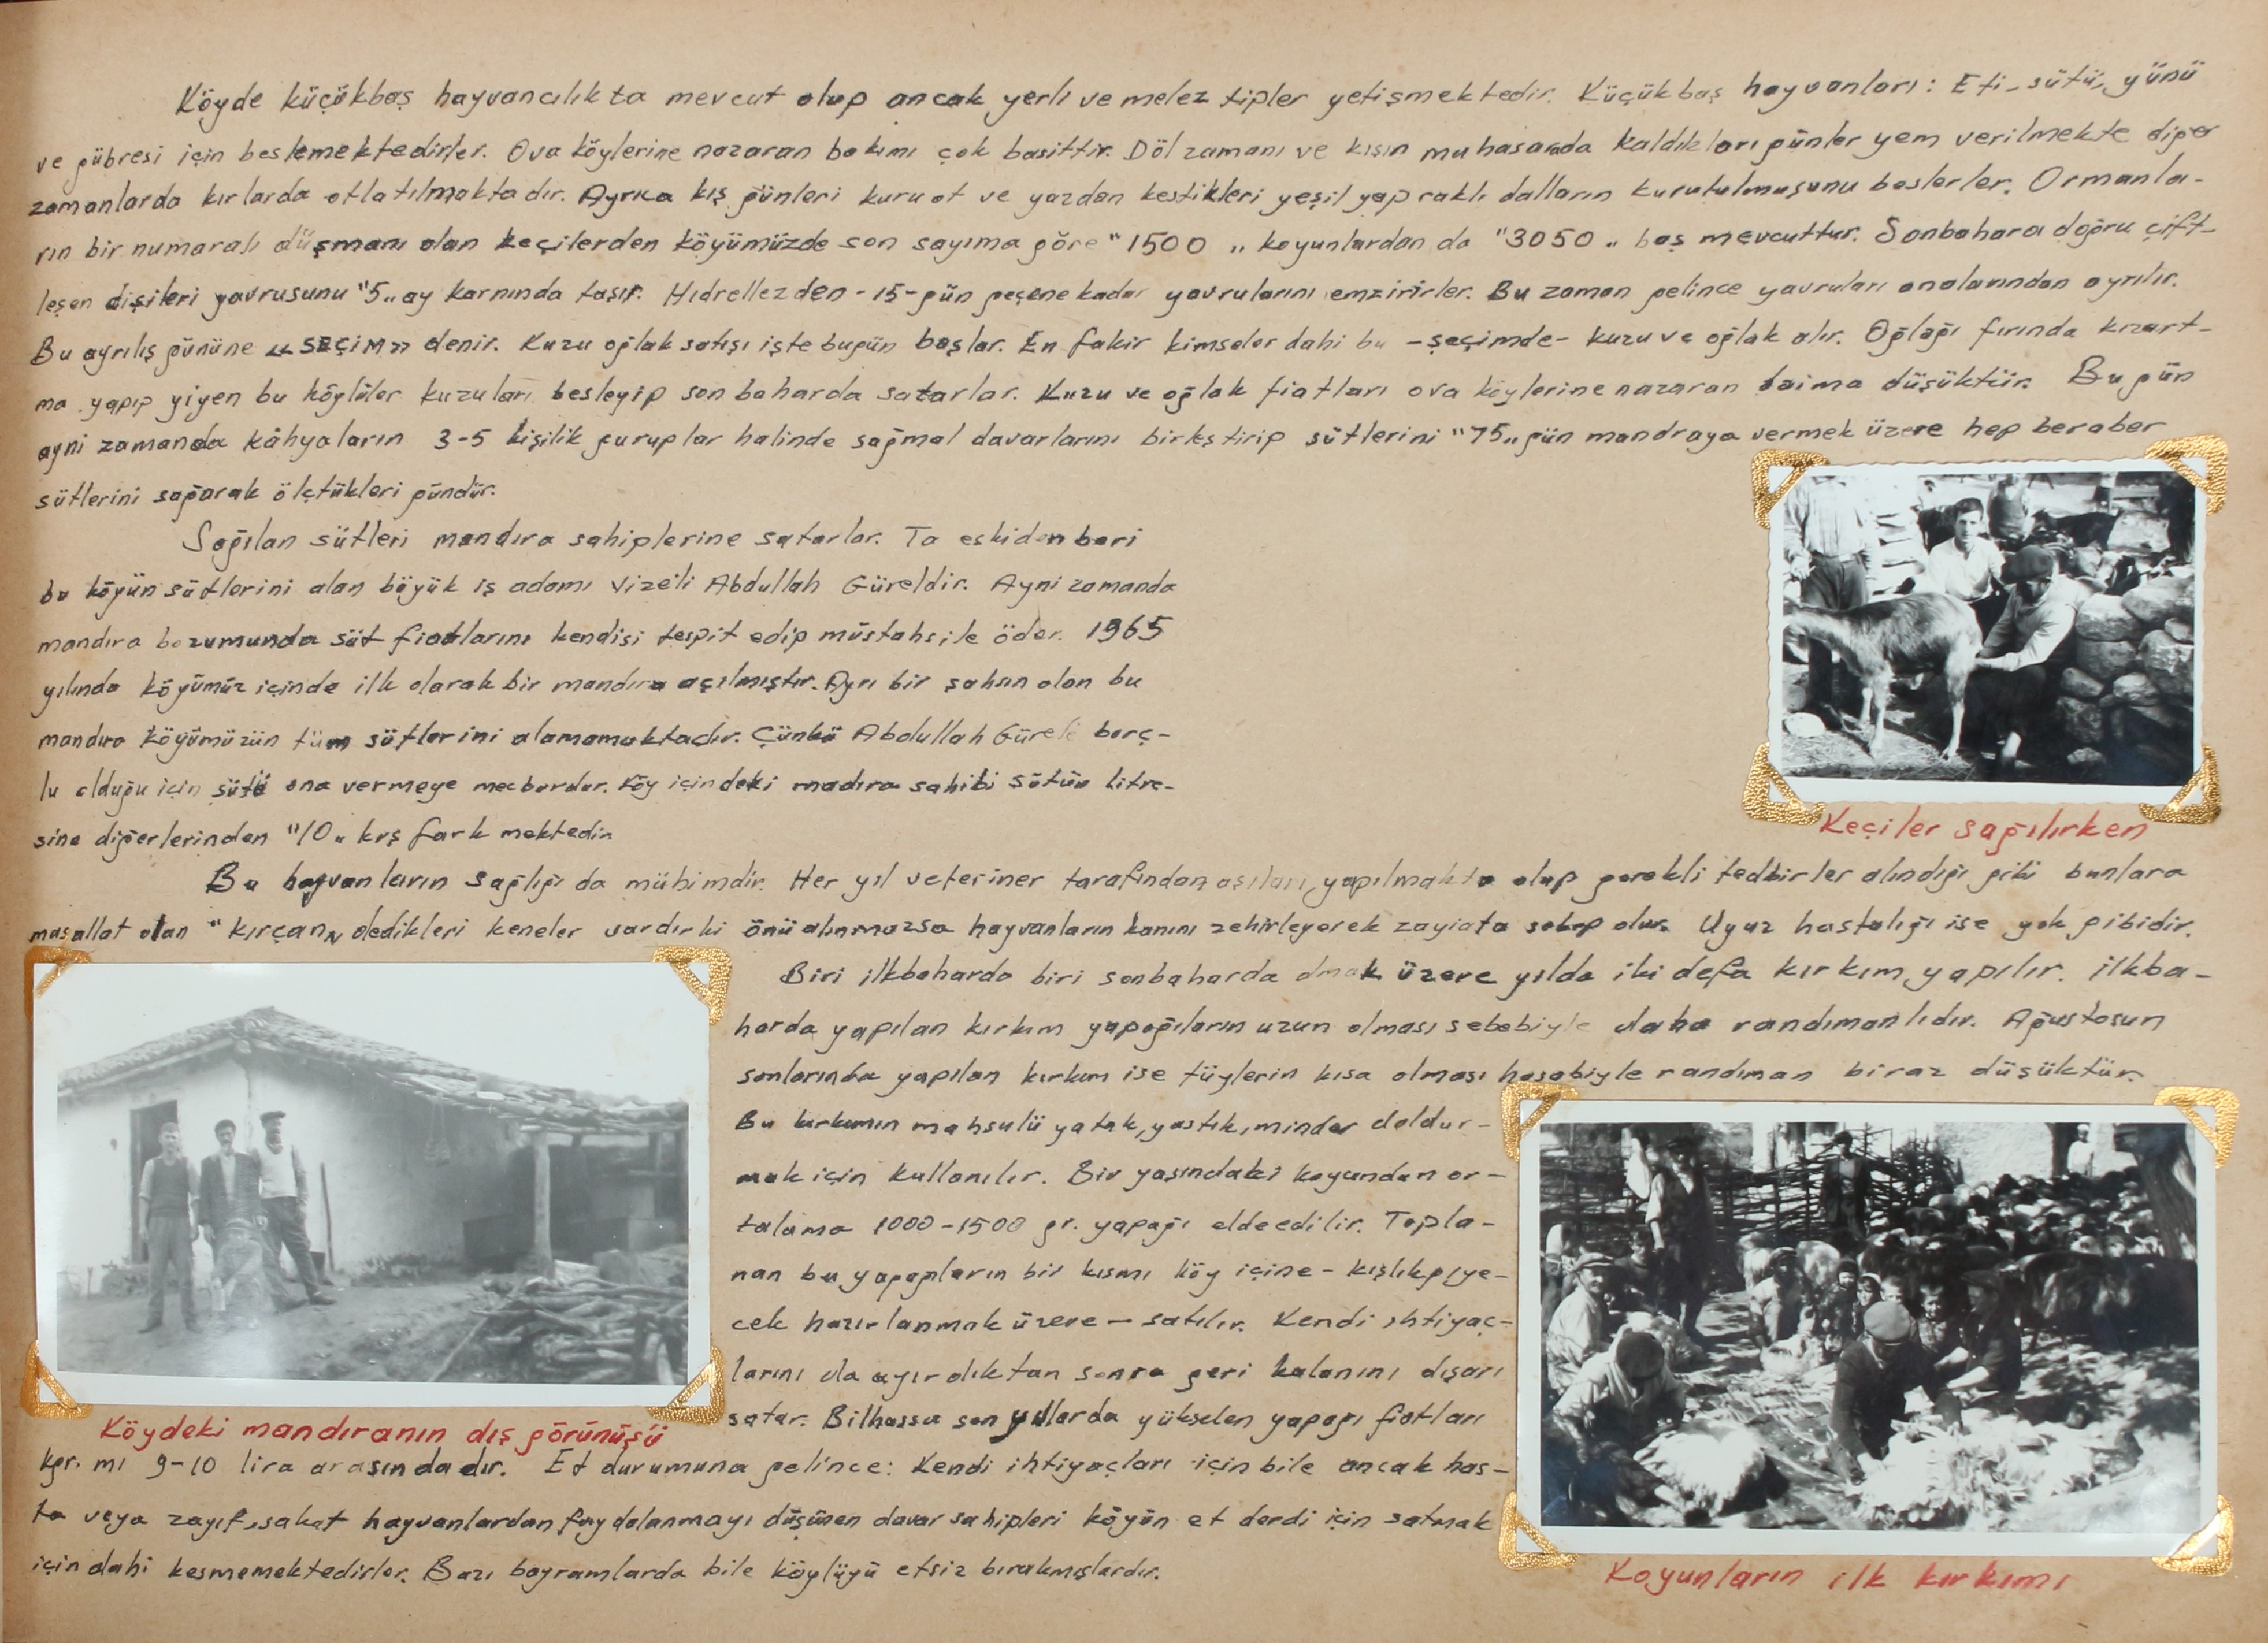 Köyde küçükbaş hayvancılıkta mevcut olup ancak yerli ve melez tipler yetişmektedir. Küçükbaş hayvanları: Eti, sütü, yünü
ve gübresi için beslemektedirler. Ova köylerine nazaran bakımı çok basittir. Döl zamanı ve kışın muhasarada kaldıkları günler yem verilmekte diğer
zamanlarda kırlarda otlatılmaktadır. Ayrıca kış günleri kuru ot ve yazdan kestikleri yeşil yapraklı dalların kurutulmuşunu beslerler. Ormanla-
rın bir numaralı düşmanı olan keçilerden köyümüzde son sayıma göre "1500 „ koyunlardan da "3050 „ baş mevcuttur. Sonbahara doğru çift-
leşen dişileri yavrusunu "5„ ay karnında taşır. Hıdrellezden -15- gün geçene kadar yavrularını emzirirler. Bu zaman gelince yavruları analarından ayrılır.
Bu ayrılış gününe «SEÇİM» denir. Kuzu oğlak satışı işte bugün başlar. En fakir kimseler dahi bu -seçimde- kuzu ve oğlak alır. Oğlağı fırında kızart-
ma yapıp yiyen bu köylüler kuzuları besleyip sonbaharda satarlar. Kuzu ve oğlak fiatları ova köylerine nazaran daima düşüktür. Bu gün
ayni zamanda kâhyaların 3-5 kişilik guruplar halinde sağmal davarlarını birleştirip sütlerini "75„ gün mandraya vermek üzere hep beraber
sütlerini sağarak ölçtükleri gündür.
Sağılan sütleri mandıra sahiplerine satarlar. Ta eskiden beri
bu köyün sütlerini alan böyük iş adamı Vizeli Abdullah Güreldir. Ayni zamanda
mandıra bozumunda süt fiatlarını kendisi tespit edip müstahsile öder. 1965
yılında köyümüz içinde ilk olarak bir mandıra açılmıştır. Ayrı bir şahsın olan bu
mandıra köyümüzün tüm sütlerini alamamaktadır. Çünkü Abdullah Gürele borç-
lu olduğu için sütü ona vermeye mecburdur. Köy içindeki madıra sahibi sütün litre-
sine diğerlerinden "10„ krş fark mektedir.
Bu hayvanların sağlığı da mühimdir. Her yıl veteriner tarafından aşıları yapılmakta olup gerekli tedbirler alındığı gibi bunlara
musallat olan "kırçan„ dedikleri keneler vardır ki önü alınmazsa hayvanların kanını zehirleyerek zayiata sebep olur. Uyuz hastalığı ise yok gibidir.
Biri ilkbaharda biri sonbaharda olmak üzere yılda iki defa kırkım yapılır. İlkba-
harda yapılan kırkım yapağıların uzun olması sebebiyle daha randımanlıdır. Ağustosun
sonlarında yapılan kırkım ise tüylerin kısa olması hasebiyle randıman biraz düşüktür.
Bu kırkımın mahsulü yatak, yastık, minder doldur-
mak için kullanılır. Bir yaşındaki koyundan or-
talama 1000-1500 gr. yapağı elde edilir. Topla-
nan bu yapağıların bir kısmı köy içine - kışlık giye-
cek hazırlanmak üzere - satılır. Kendi ihtiyaç-
larını da ayırdıktan sonra geri kalanını dışarı
satar. Bilhassa son yıllarda yükselen yapağı fiatları
kgr. mı 9-10 lira arasındadır. Et durumuna gelince: Kendi ihtiyaçları için bile ancak has-
ta veya zayıf, sakat hayvanlardan faydalanmayı düşünen davar sahipleri köyün et derdi için satmak
için dahi kesmemektedirler. Bazı bayramlarda bile köylüyü etsiz bırakmışlardır.
Keçiler sağılırken
Köydeki mandıranın dış görünüşü
Koyunların ilk kırkımı